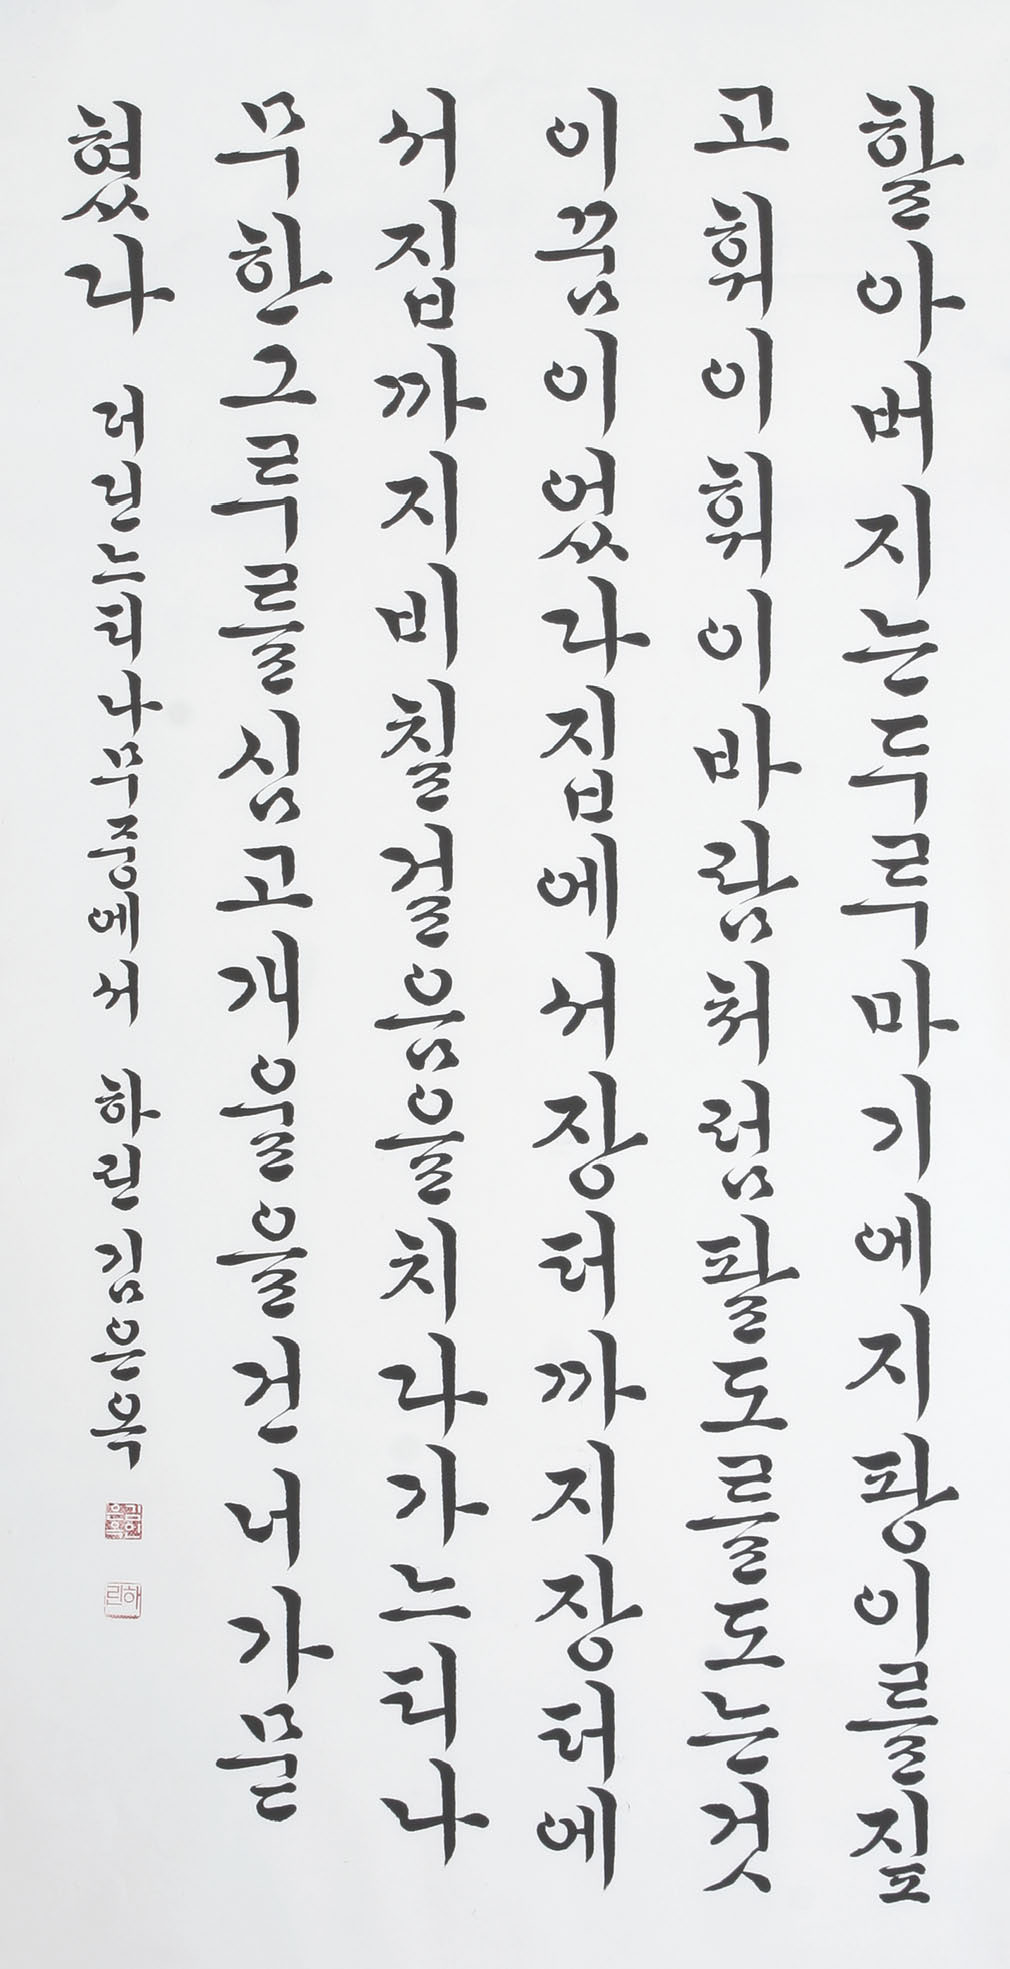 할아버지는두루마기에지팡이를짚
고휘이휘이바람처럼팔도를도는것
이꿈이었다집에서장터까지장터에
서집까지비칠걸음을치다가느티나
무한그루를심고개울을건너가묻
혔다 더딘느티나무중에서 하린 김은옥
하린